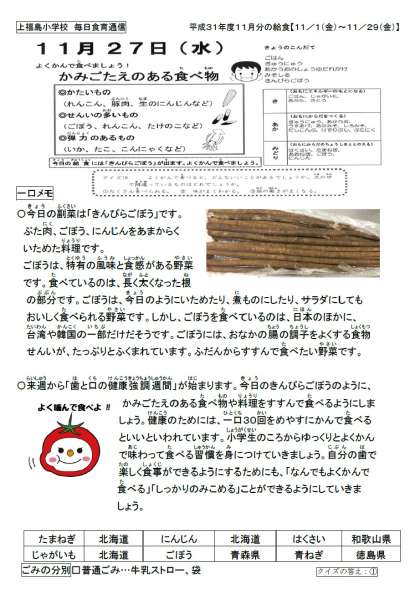 上福島小学校　毎日食育通信
平成31年度11月分の給食【11／1（金）～11／29（金）】
11月27日（水）
よくかんで食べましょう！
かみごたえのある食べ物
◎かたいもの
（れんこん、豚肉、生のにんじんなど）
◎せんいの多いもの
（ごぼう、れんこん、たけのこなど）
◎弾力のあるもの
（いか、たこ、こんにゃくなど）
今日の給食には「きんぴらごぼう」が出ます。よくかんで食べましょう。
きょうのこんだて
ごはん
ぎゅうにゅう
みそしる
きんぴらごぼう
き
あか
みどり
一口メモ
○今日の副菜は「きんぴらごぼう」です。
ぶた肉、ごぼう、にんじんをあまからく
いためた料理です。
ごぼうは、特有の風味と食感がある野菜
です。食べているのは、長く太くなった根
の部分です。ごぼうは、今日のようにいためたり、煮ものにしたり、サラダにしても
おいしく食べられる野菜です。しかし、ごぼうを食べているのは、日本のほかに、
台湾や韓国の一部だけだそうです。ごぼうには、おなかの腸の調子をよくする食物
せんいが、たっぷりとふくまれています。ふだんからすすんで食べたい野菜です。
○来週から「歯と口の健康強調週間」が始まります。今日のきんぴらごぼうのように、
よく噛んで食べよ!!
かみごたえのある食べ物や料理をすすんで食べるようにしま
しょう。健康のためには、一口30回をめやすにかんで食べる
といいといわれています。小学生のころからゆっくりとよくかん
で味わって食べる習慣を身につけていきましょう。自分の歯で
楽しく食事ができるようにするためにも、「なんでもよくかんで
食べる」「しっかりのみこめる」ことができるようにしていきま
しょう。
たまねぎ　北海道　にんじん　北海道　はくさい　和歌山県
じゃがいも　北海道　ごぼう　青森県　青ねぎ　徳島県
ごみの分別　□普通ごみ…牛乳ストロー、袋
クイズの答え：①